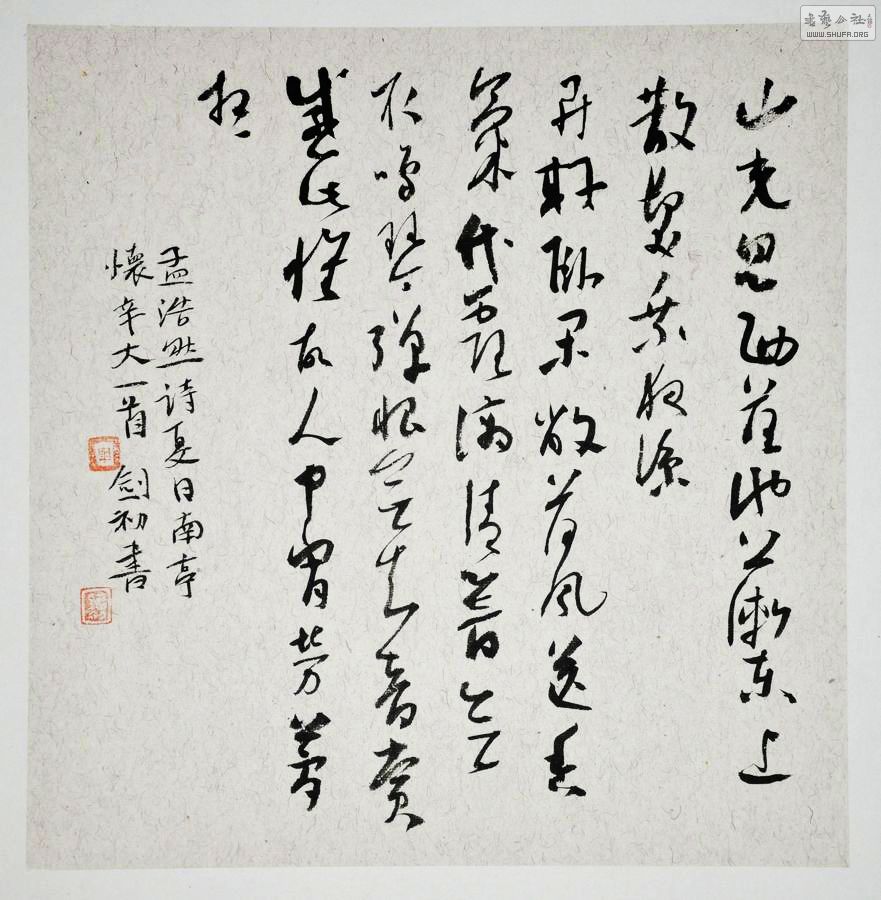 山光忽西落池月漸東上
散髮乘夜涼
開軒臥閑敞荷風送香
氣竹露滴清響欲
取鳴琴彈恨無知音賞
感此懷故人中宵勞夢
想
孟浩然詩夏日南亭
懷辛大一首 劍初書
書藝公社
WWW.SHUFA.ORG